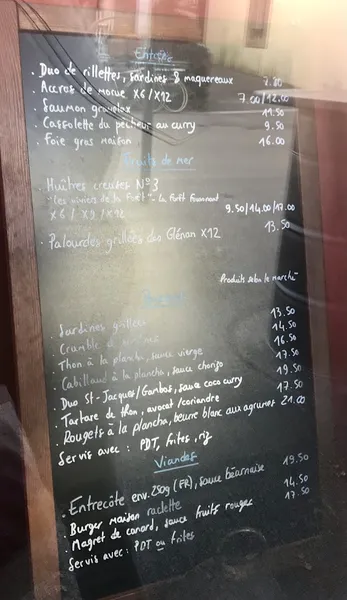 Entrées
. Duo de rillettes, sardines & maquereaux 7.80
. Accras de morue X6/X12 7.00/12.00
. Saumon gravelox 11.50
. Cassolette du pêcheur au curry 9.50
. Foie gras maison 16.00
Fruits de mer
. Huîtres creuses N°3
"Les viviers de la Forêt" - La Forêt Fouesnant
X6 / X9 / X12 9.50/14.00/17.00
. Palourdes grillées des Glénan X12 13.50
Produits selon le marché
Poissons
. Sardines grillées 13.50
. Crumble de 14.50
. Thon à la plancha, sauce vierge 16.50
. Cabillaud à la plancha, sauce chorizo 17.50
. Duo St-Jacques/Gambas, sauce coco curry 19.50
. Tartare de thon, avocat/coriandre 17.50
. Rougets à la plancha, beurre blanc aux agrumes 21.00
Servis avec : PDT, frites, riz
Viandes
. Entrecôte env. 250g (FR), sauce béarnaise 19.50
. Burger maison raclette 14.50
. Magret de canard, sauce fruits rouges 17.50
Servis avec : PDT ou frites